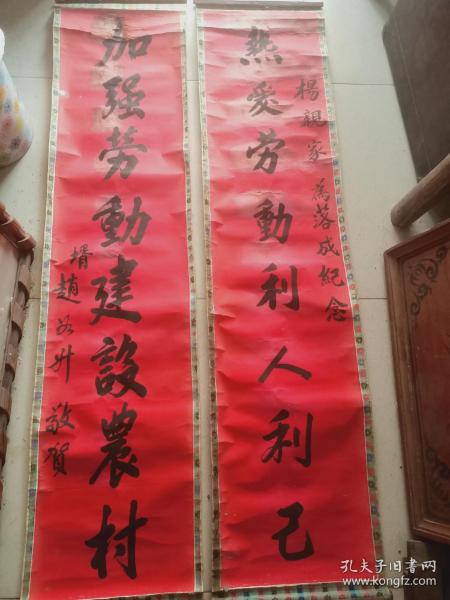 熱愛劳動利人利己
楊親家為落成紀念
加强劳動建設農村
壻趙如升敬賀
孔夫子旧书网
www.kongfz.com